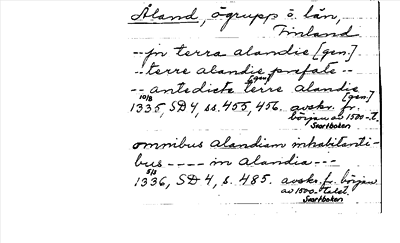 Åland, ögrupp ö. län,
Finland
--in terra alandie [gen.]
--terre alandie prefate--
[gen.]
--antedicte terre alandie
[gen.]
10/8
1335, SD 4, ss. 455, 456. avskr. fr.
början av 1500-t.
Svartboken
omnibus alandiam inhabitanti-
bus ---- in alandia ---
5/3
1336, SD 4, s. 485. avskr. fr. början
av 1500-talet.
Svartboken